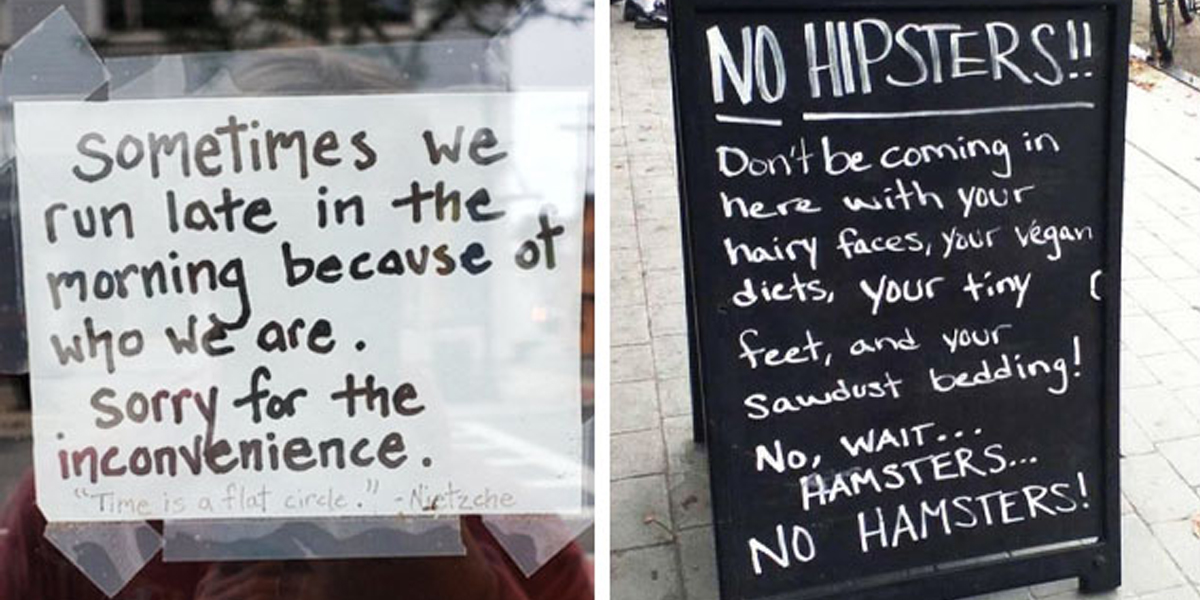 Sometimes we
run late in the
morning because of
who we are.
Sorry for the
inconvenience.
"Time is a flat circle." - Nietzche
NO HIPSTERS!!
Don't be coming in
here with your
hairy faces, your vegan
diets, your tiny
feet, and your
sawdust bedding!
No, WAIT...
HAMSTERS...
NO HAMSTERS!